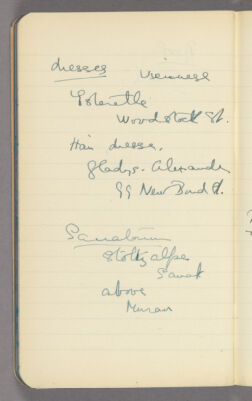 dresses Viennese
Woodstock St.
Hair dresser,
Gladys. Alexander
99 New Bond St.
Sanatorium
Stolzalpe
above
Murau